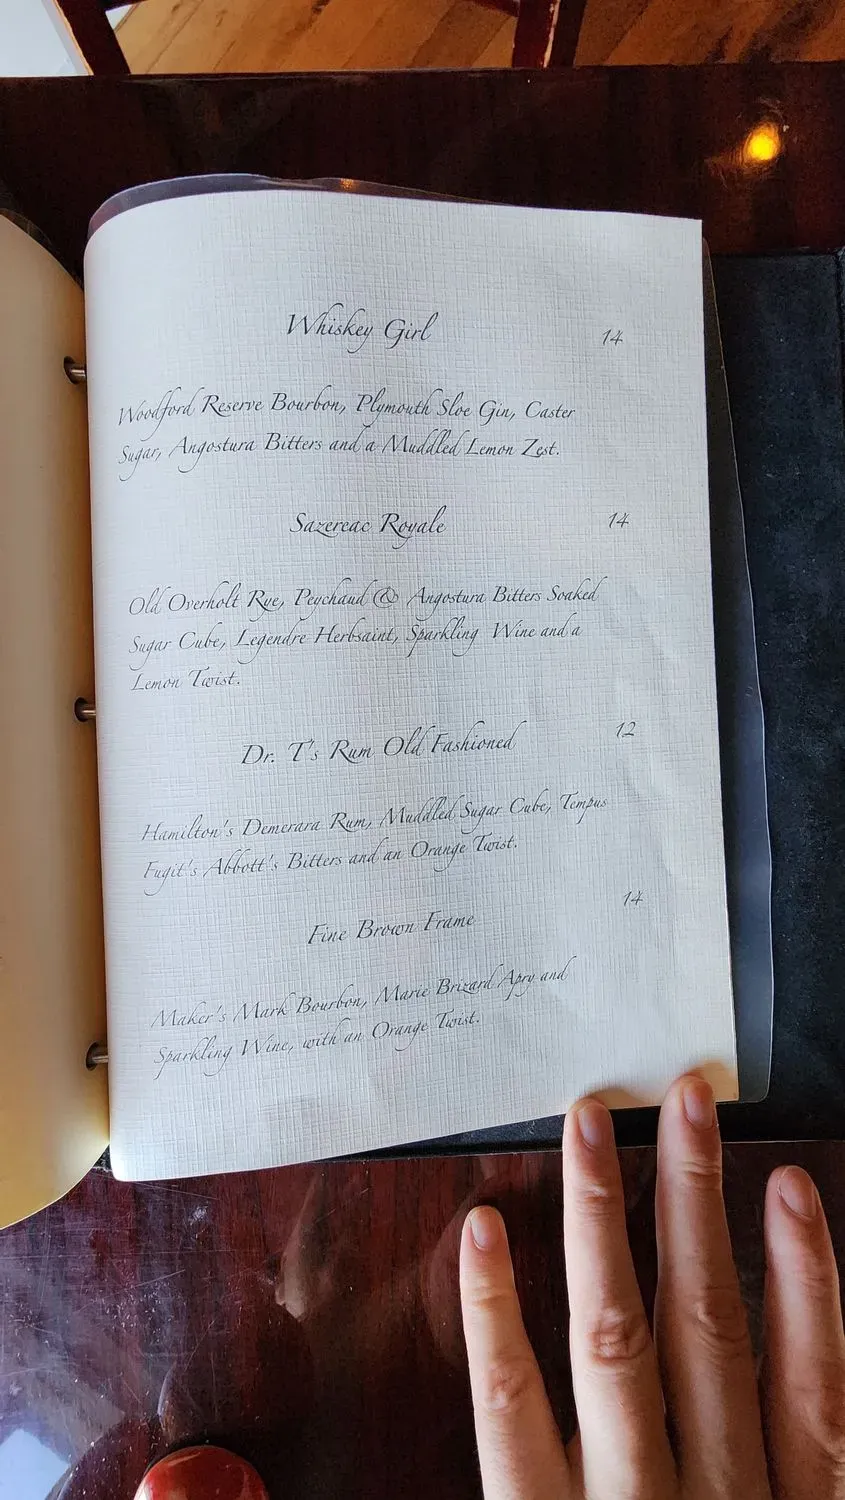 Whiskey Girl 14
Woodford Reserve Bourbon, Plymouth Sloe Gin, Caster
Sugar, Angostura Bitters and a Muddled Lemon Zest.
Sazereac Royale 14
Old Overholt Rye, Peychaud & Angostura Bitters Soaked
Sugar Cube, Legendre Herbsaint, Sparkling Wine and a
Lemon Twist.
Dr. T's Rum Old Fashioned 12
Hamilton's Demerara Rum, Muddled Sugar Cube, Tempus
Fugit's Abbott's Bitters and an Orange Twist.
Fine Brown Frame 14
Maker's Mark Bourbon, Marie Brizard Apry and
Sparkling Wine, with an Orange Twist.